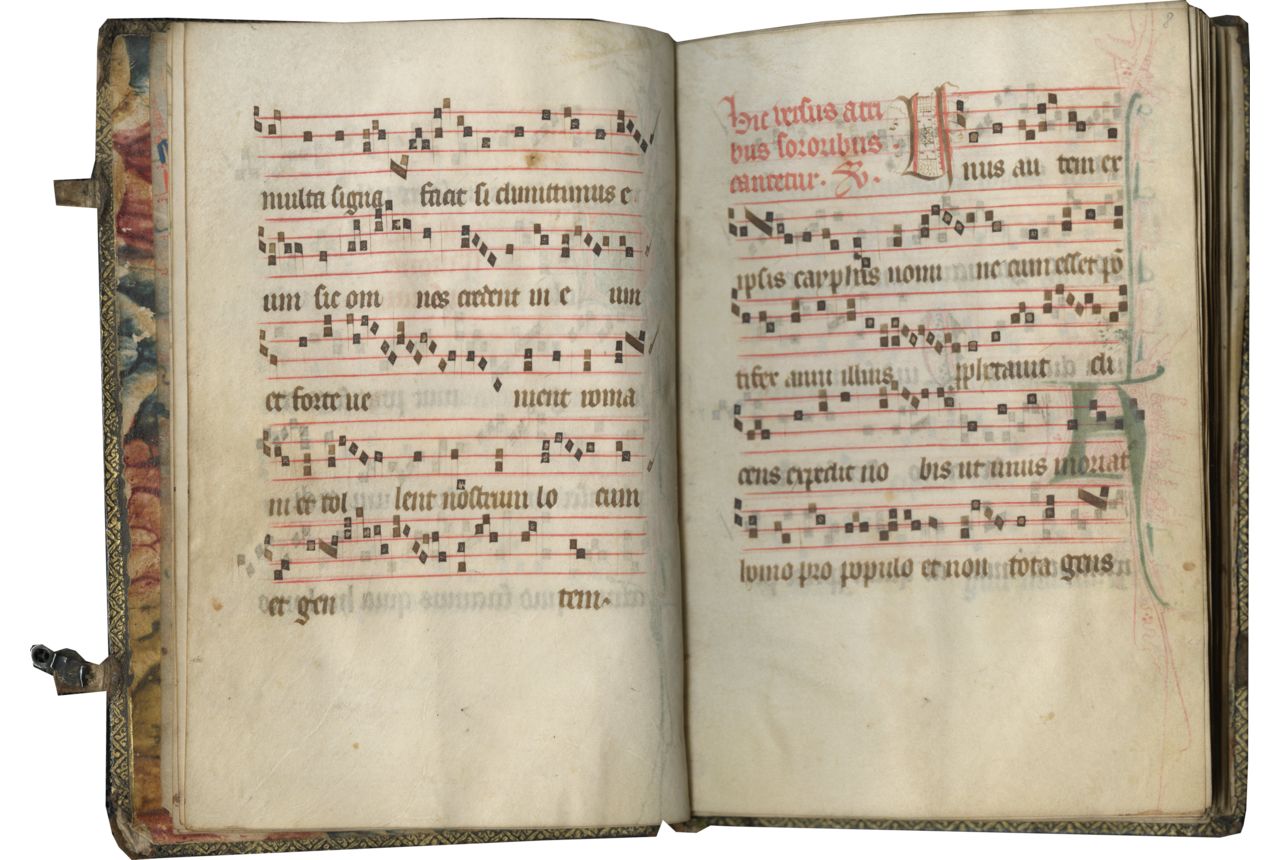 multa signa facit si dimittimus e
um sic om nes credent in e um
et forte ue nient roma
ni et tol lent nostrum lo cum
et gen tem.
8
Hic versus a tri
bus sororibus
cantetur. V.
Unus au tem ex
ipsis cayphas nomi ne cum esset pō
tifex anni illius ꝓphetauit di
cens expedit uo bis ut unus moriat
homo pro populo et non tota gens